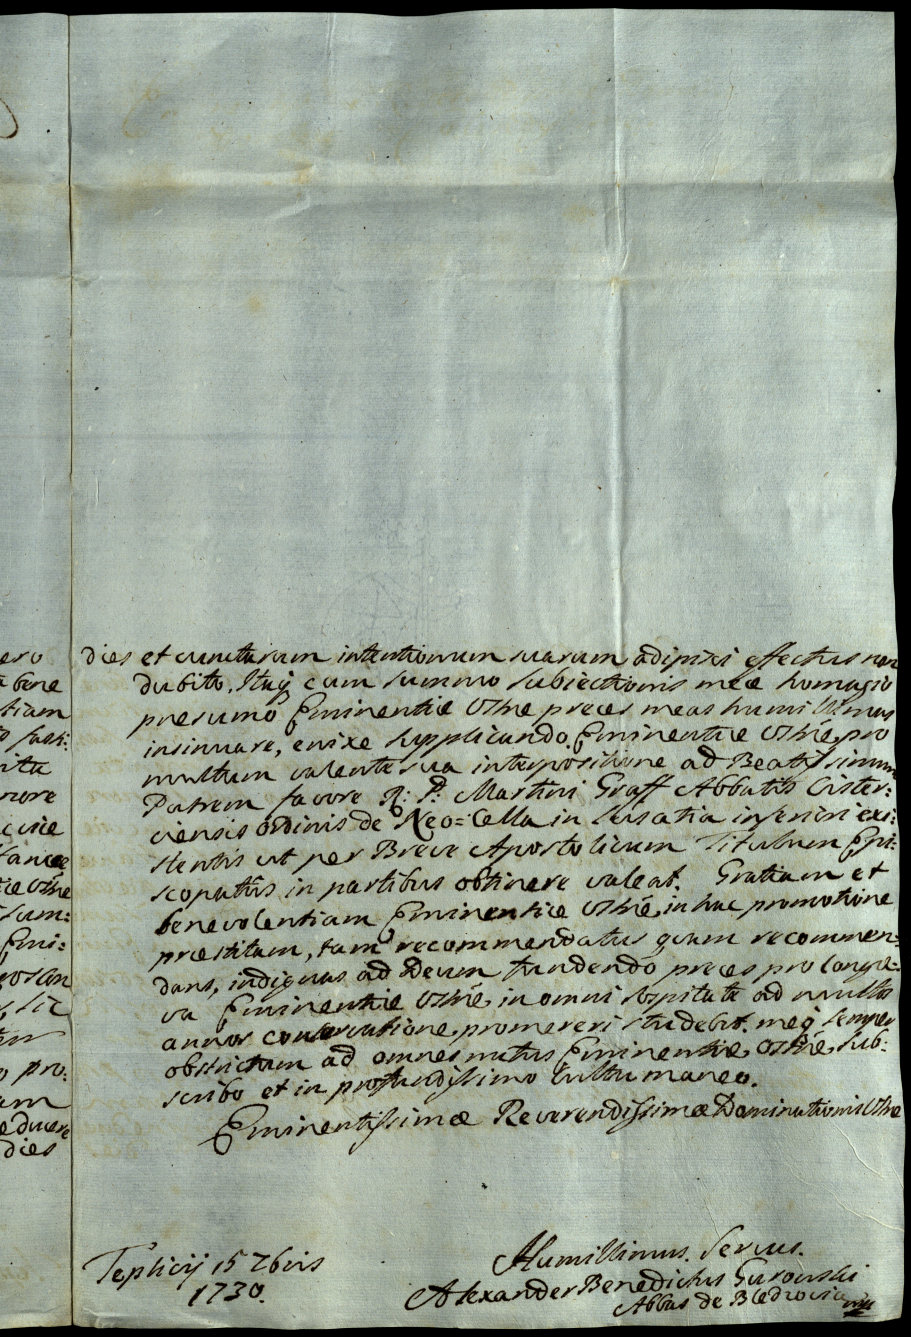 dies et cunctarum intentionum suarum adipisci effectus non
dubito. Itaq cum summo subiectionis meæ homagio
præsumo Eminentiæ Vstræ preces meas humillimas
insinuare, enixe supplicando Eminentiæ Vstræ, pro
multum valente sua interpositione ad Beatissimum
Patrem favore R: P: Martini Graff Abbatis Cister:
ciensis ordinis de Neo=Cella in Lusatia inferiori exi:
stentis ut per Breve Apostolicum Titulum Epi:
scopatûs in partibus obtinere valeat. Gratiam et
benevolentiam Eminentiæ Vstræ, in hac promotione
præstitam, tam recommendatus quam recommen:
dans, indignus ad Deum fundendo preces pro longæ:
va Eminentiæ Vstræ, in omni sospitate ad multos
annos conservatione, promereri studebit. meq semper
obstrictum ad omnes nutus Eminentiæ Vstræ, sub:
scribo et in profundissimo cultu maneo.
Eminentissimæ Reverendissimæ Dominationis Vstræ
Humillimus Servus.
Teplicij 15 7bris
1730.
Alexander Benedictus Gurowski
Abbas de Bledrovia
ero
bene
tiam
nore
tiæ Vstræ
sum:
Emi:
pro:
am
educere
dies